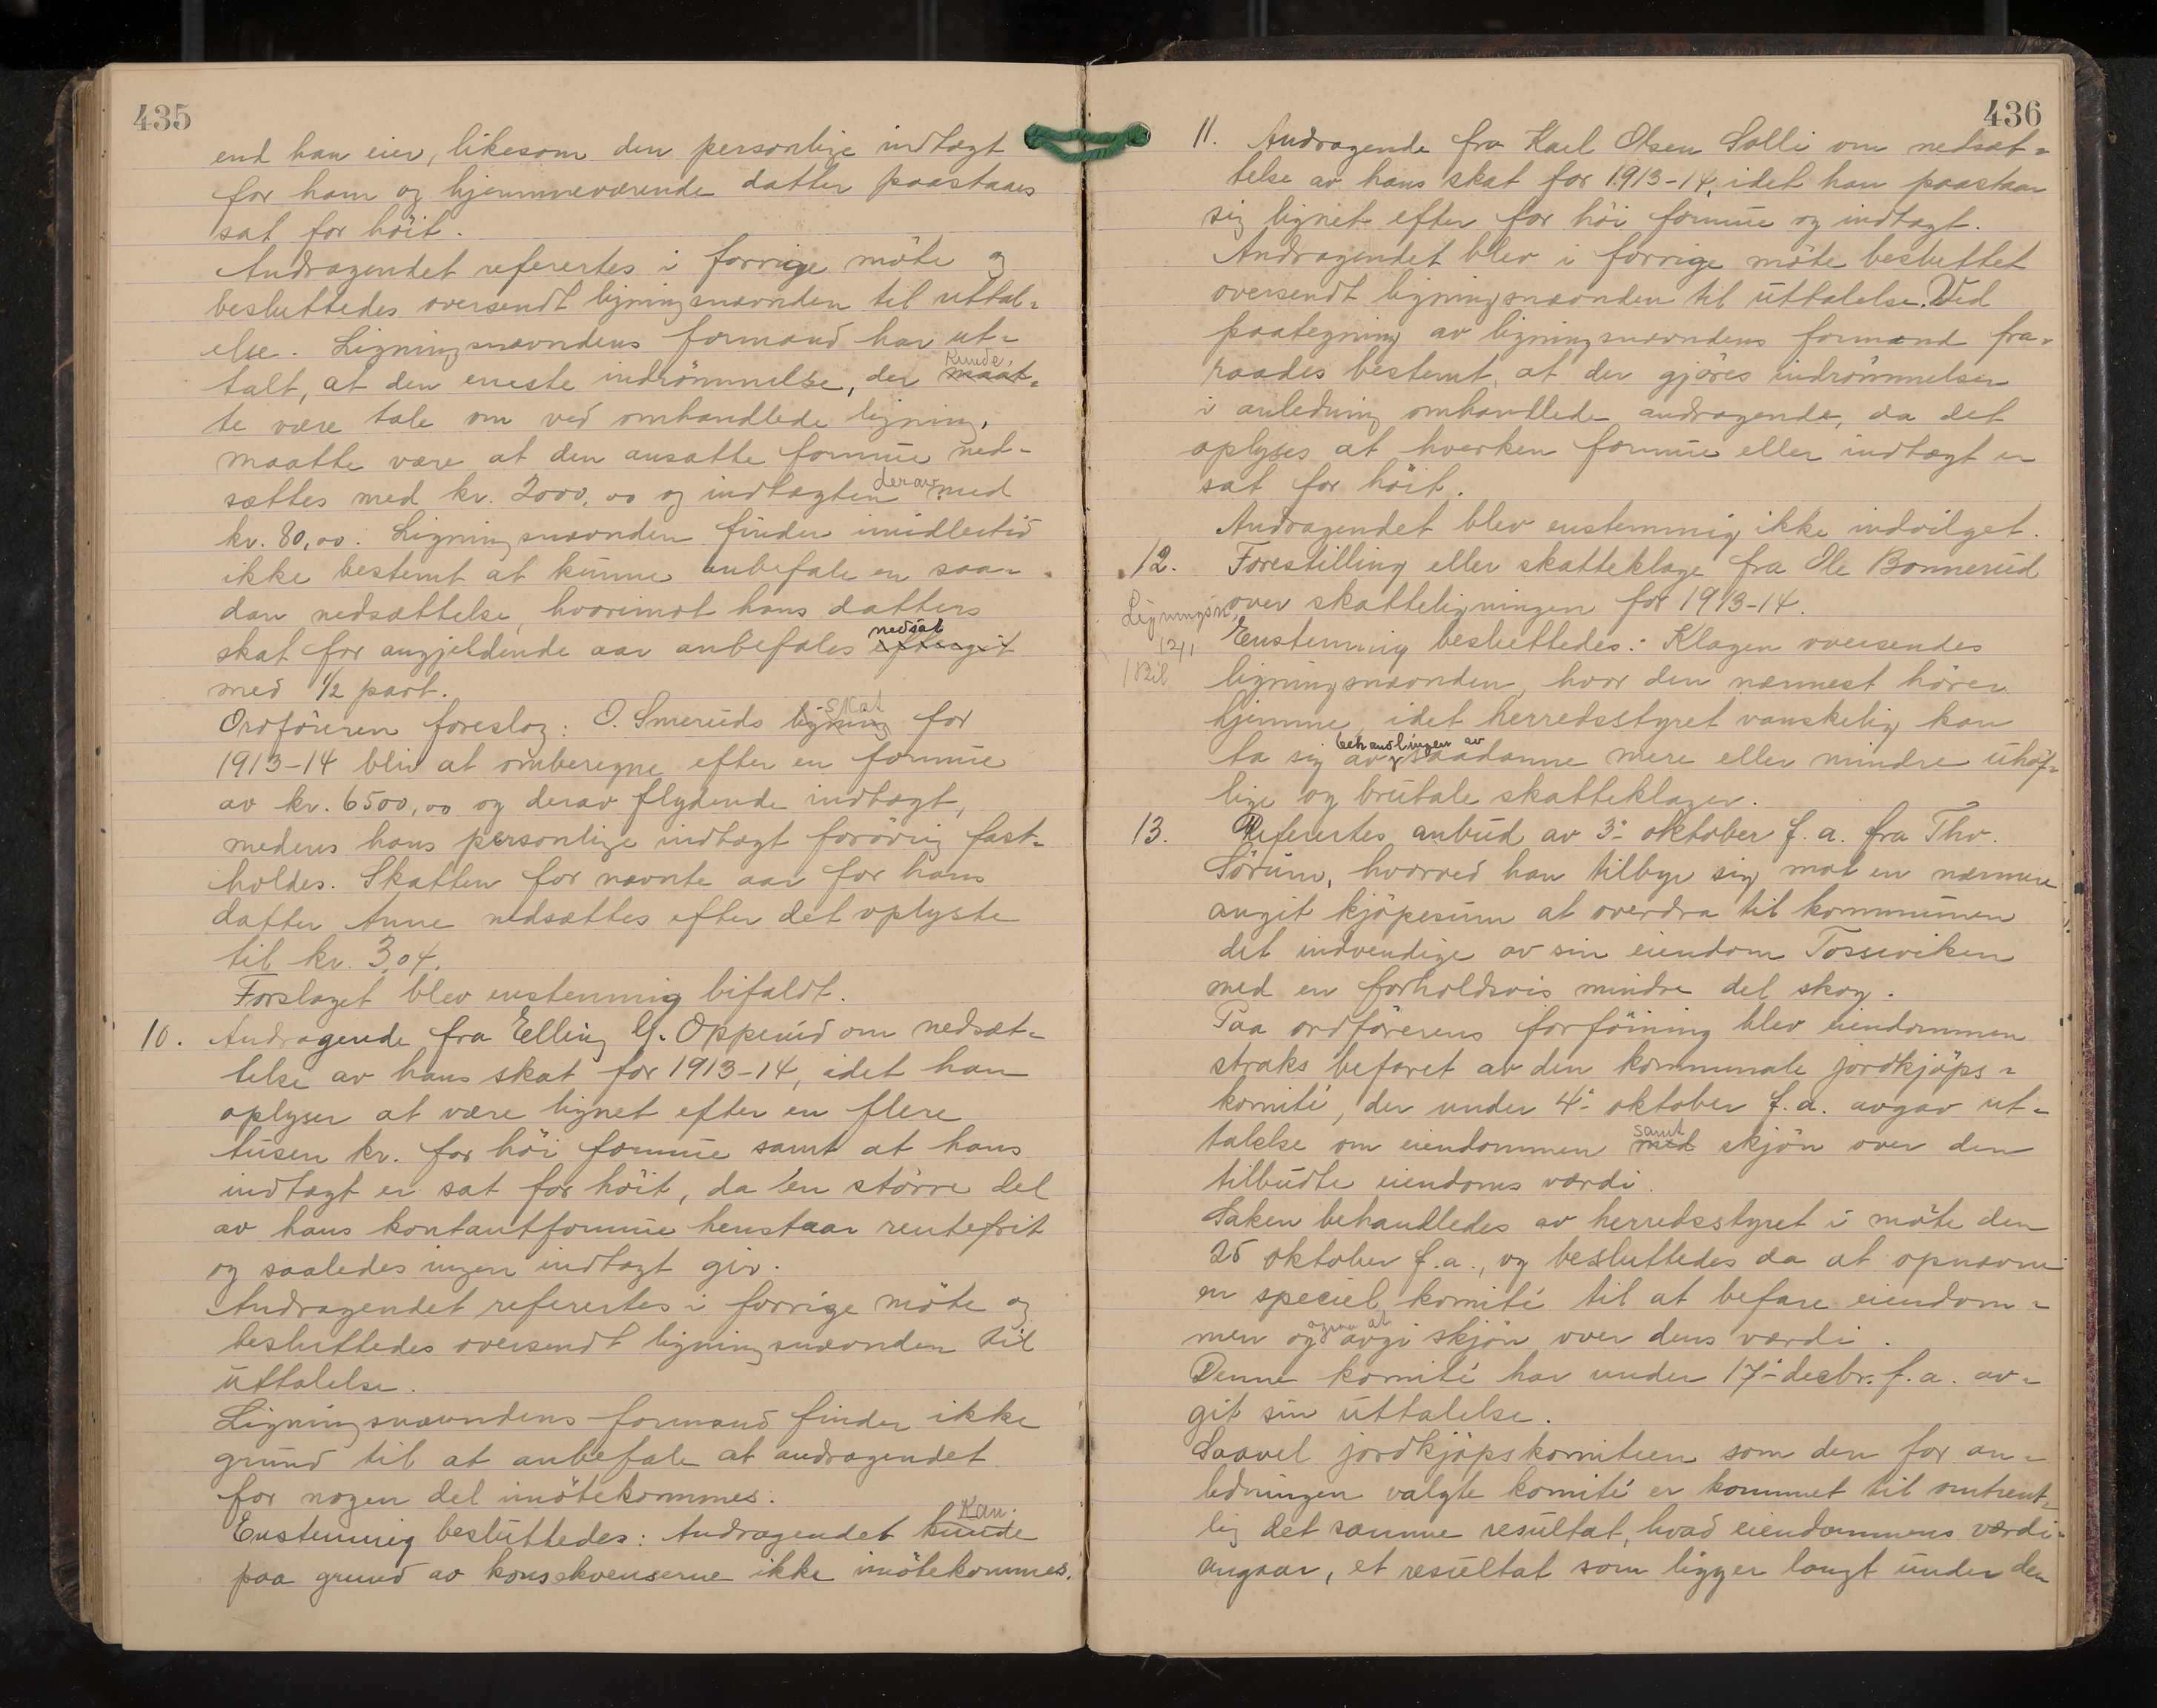 435
end han eier, likesom den personlige indtægt
for ham og hjemmeværende datter paastaaes
sat for höit.
Andragendet refereres i forrige möte og
besluttedes oversendt ligningsnævnden til uttal-
else. Ligningsnævndens formand har ut-
kunde,
talt, at den eneste indrömmelse, der maat-
te være tale om ved omhandlede ligning,
maatte være at den ansatte formue ned-
sættes med kr. 2000,00 og indtægten derav med
kr. 80,00. Ligningsnævnden finder imidlertid
ikke bestemt at kunne anbefale en saa-
dan nedsættelse, hvorimot hans datters
nedsat
skat for angjeldende aar anbefales eftergit
med 1/2 part.
skat
Ordföreren foreslog: O. Smeruds ligning for
1913-14 blir at omberegne efter en formue
av kr. 6500,00 og derav flydende indtægt,
medens hans personlige indtægt forövrig fast-
holdes. Skatten for nævnte aar for hans
datter Anne nedsættes efter det oplyste
til kr. 3,04.
Forslaget blev enstemmig bifaldt.
10. Andragende fra Elling G. Opperud om nedsæt-
telse av hans skat for 1913-14, idet han
oplyser at være lignet efter en flere
tusen kr. for höi formue samt at hans
indtægt er sat for höit, da en större del
av hans kontantformue henstaar rentefrit
og saaledes ingen indtægt gir.
Andragendet refereres i forrige möte og
besluttedes oversendt ligningsnævnden til
uttalelse.
Ligningsnævndens formand finder ikke
grund til at anbefale at andragendet
for nogen del imötekommes.
Kan
Enstemmig besluttedes: Andragendet kunde
paa grund av konsekvenserne ikke imötekommes.
436
11. Andragende fra Karl Olsen Solli om nedsæt-
telse av hans skat for 1913-14, idet han paastaar
sig lignet efter for höi formue og indtægt.
Andragendet blev i forrige möte besluttet
oversendt ligningsnævnden til uttalelse. Ved
paategning av ligningsnævndens formand fra-
raades bestemt, at der gjöres indrömmelser
i anledning omhandlede andragende, da det
oplyses at hverken formue eller indtægt er
sat for höit.
Andragendet blev enstemmig ikke indvilget.
12. Forestilling eller skatteklage fra Ole Bonnerud
over skatteligningen for 1913-14.
Ligningsn.
12/1
1 Bil
Enstemmig besluttedes: Klagen oversendes
ligningsnævnden, hvor den nærmest hörer
hjemme, idet herredsstyret vanskelig kan
behandlingen av
ta sig av saadanne mere eller mindre uhöf-
lige og brutale skatteklager.
13. Refertes anbud av 3. oktober f. a. fra Thv.
Sörum, hvorved han tilbyr sig mot en nærmere
angit kjöpesum at overdra til kommunen
det indvendige av sin eiendom Tosseviken
med en forholdsvis mindre del skog.
Paa ordförerens forföining blev eiendommen
straks befaret av den kommunale jordkjöps-
komité, der under 4. oktober f. a. avgav ut-
samt
talelse om eiendommen med skjön over den
tilbudte eiendoms værdi.
Saken behandledes av herredsstyret i möte den
25 oktober f. a., og besluttedes da at opnævne
en speciel komité til at befare eiendom-
men og avgi skjön over dens værdi.
Denne komité har under 17. decbr. f. a. av-
git sin uttalelse.
Saavel jordkjöpskomiteen som den for an-
ledningen valgte komité er kommet til omtrent-
lig det samme resultat, hvad eiendommens værdi
angaar, et resultat som ligger langt under den